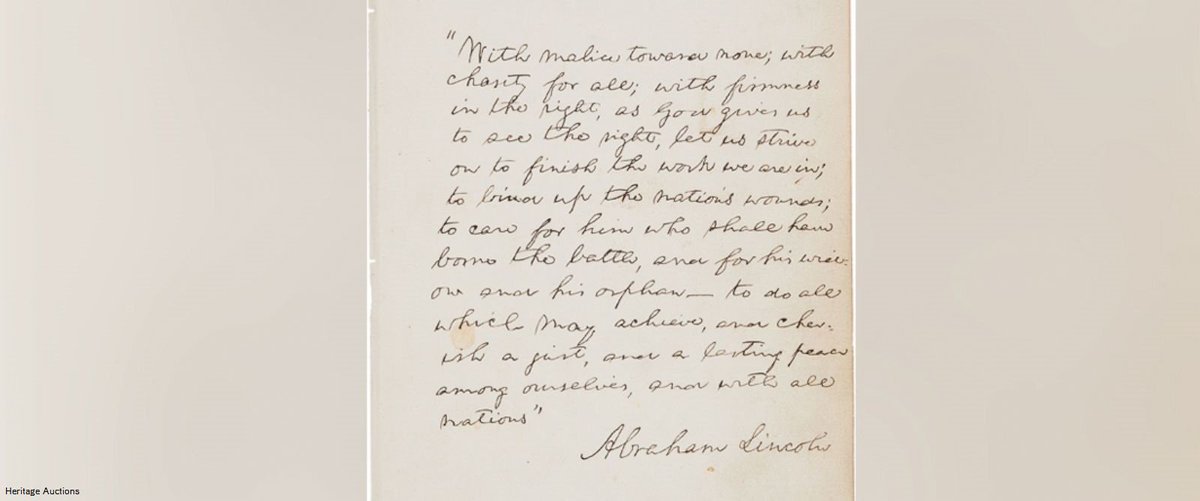 "With malice toward none; with
charity for all; with firmness
in the right, as God gives us
to see the right, let us strive
on to finish the work we are in;
to bind up the nation's wounds;
to care for him who shall have
borne the battle, and for his wid-
ow and his orphan— to do all
which may achieve, and cher-
ish a just, and a lasting peace
among ourselves, and with all
nations"
Abraham Lincoln
Heritage Auctions